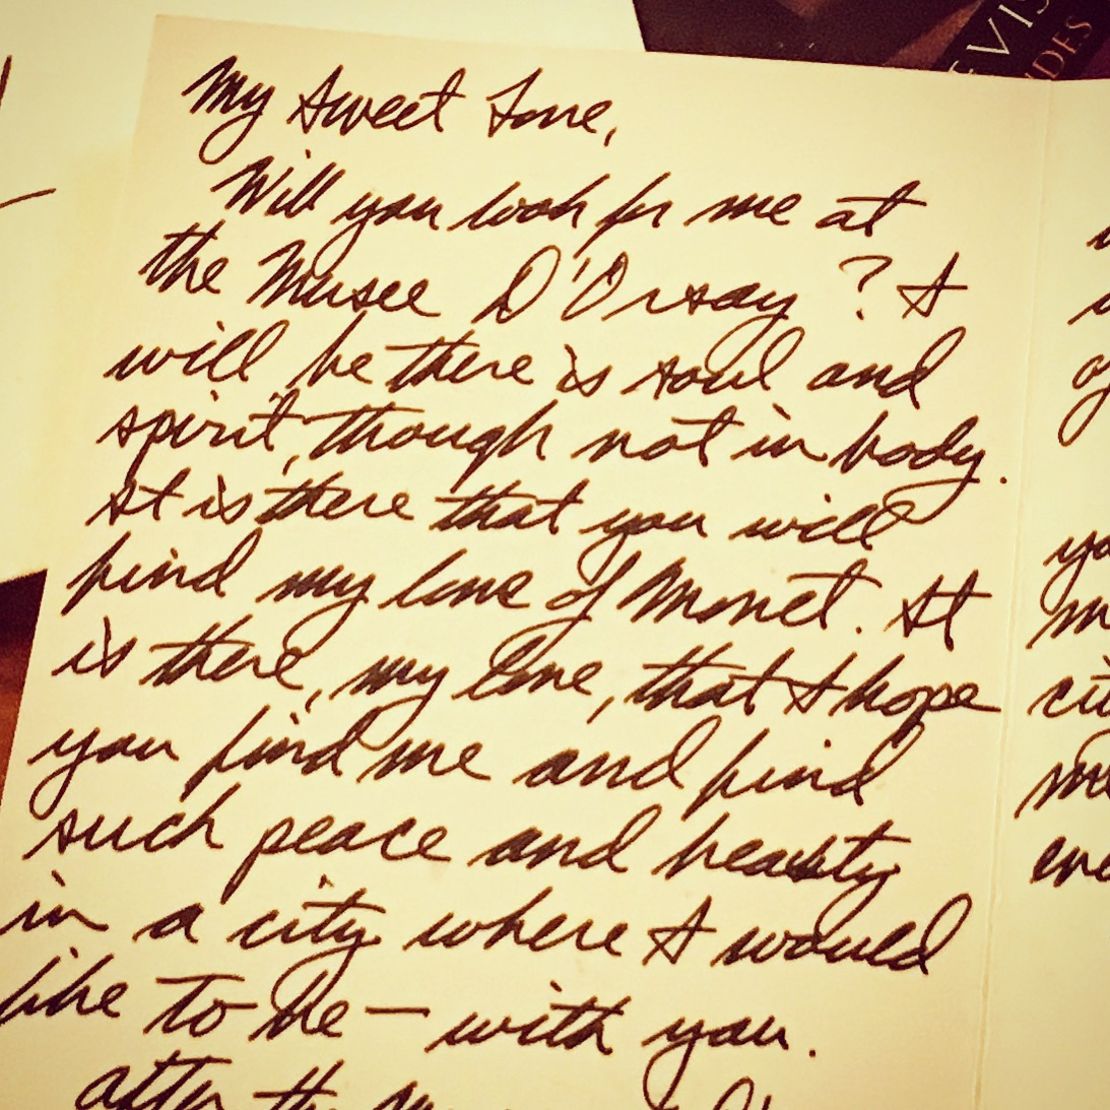 My sweet Love,
Will you look for me at
the Musee D'Orsay? I
will be there is soul and
spirit, though not in body.
It is there that you will
find my love of Monet. It
is there, my love, that I hope
you find me and find
such peace and beauty
in a city where I would
like to be — with you.
after the